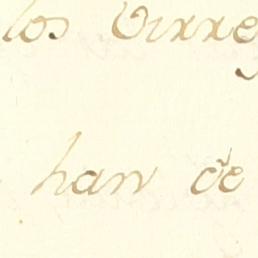 los Virre
han de